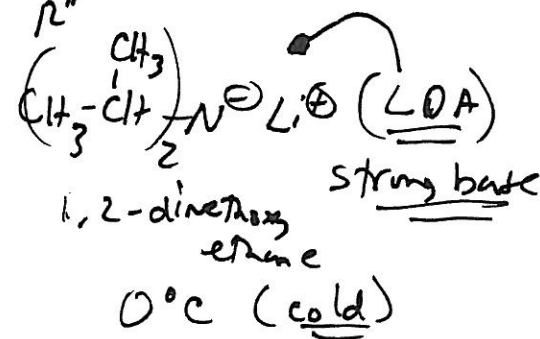 R"
CH₃
(CH₃-CH)₂-N⊖ Li⊕ (LDA)
strong base
1, 2-dimethoxy
ethane
0°C (cold)